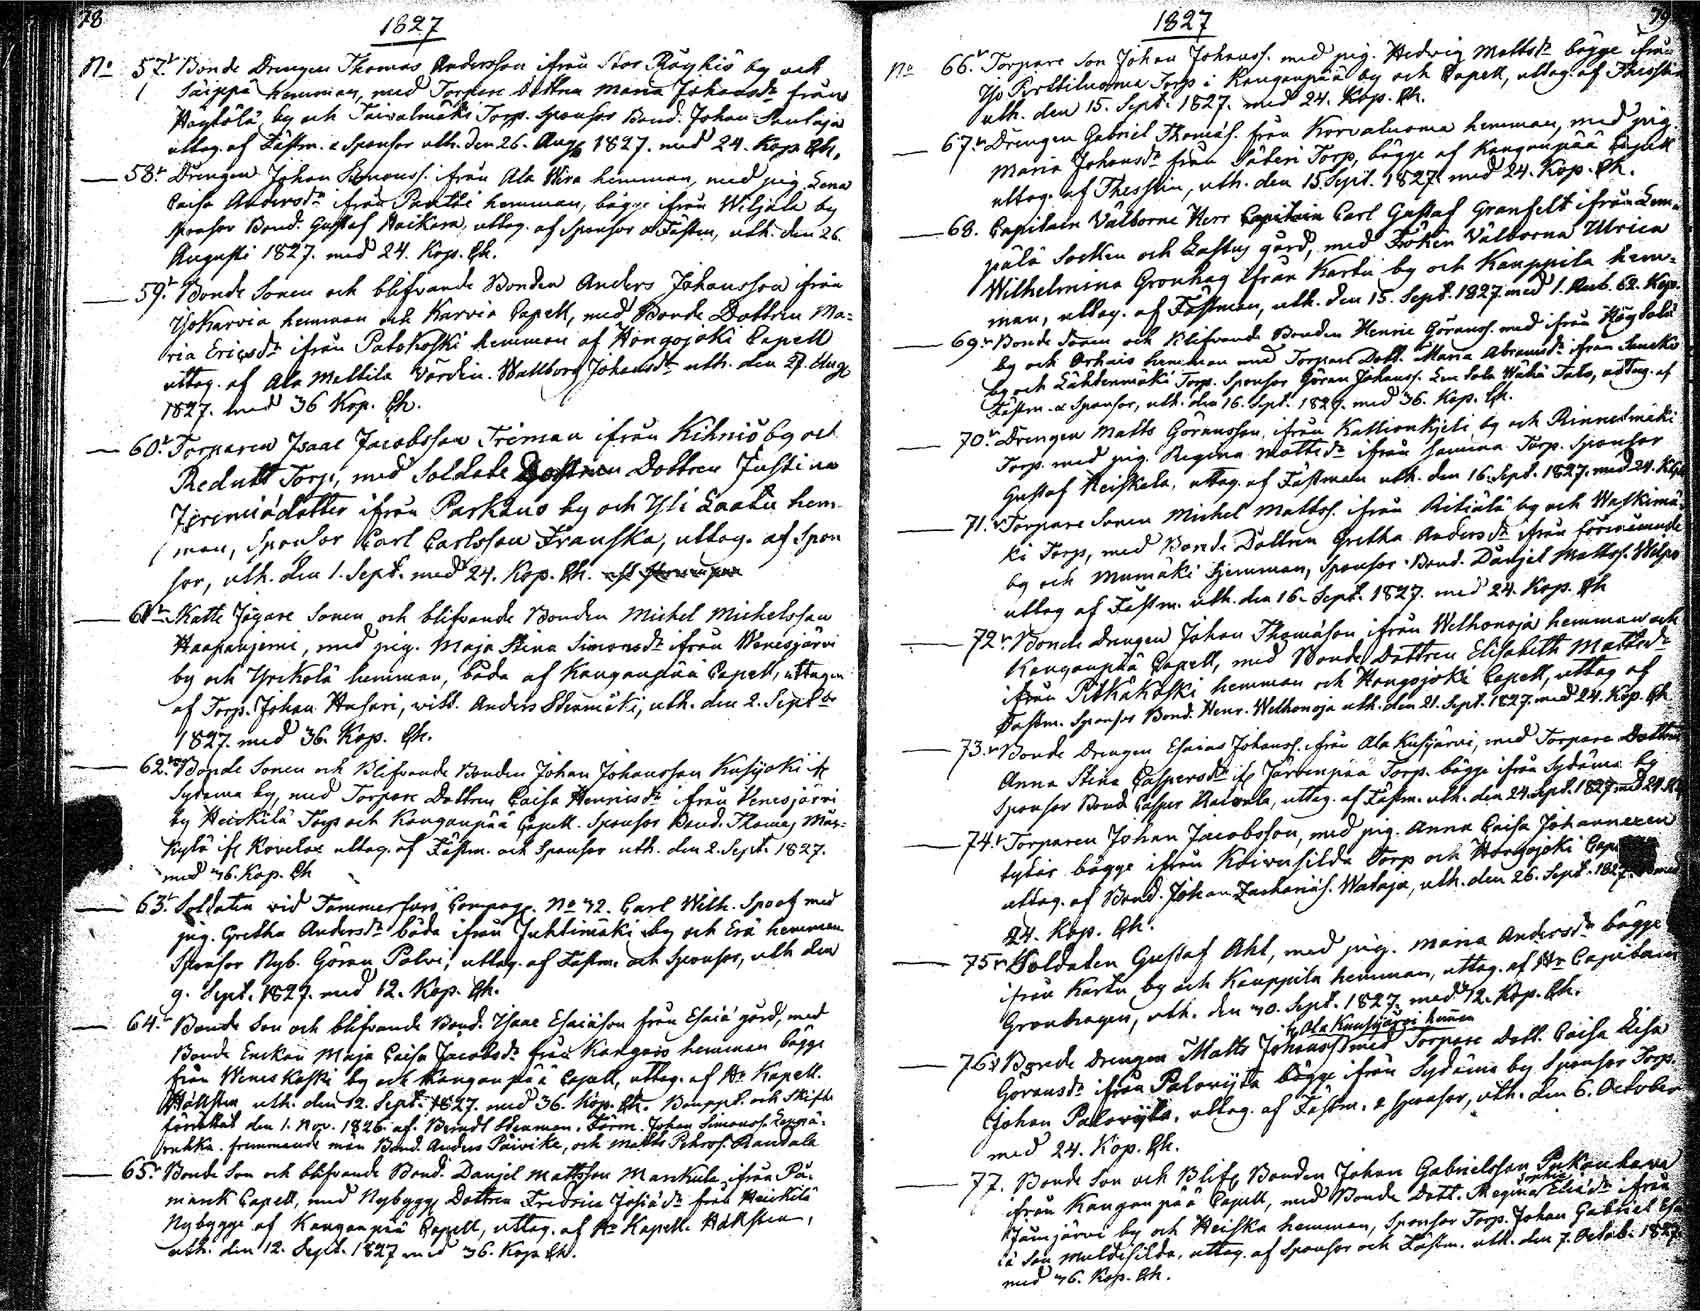 78
1827
No 57. Bonde Drengen Thomas Andersson ifrån Stor Röyhiö by och
hemman, med Torpare Dottren Maria Johansdr från
by och Taivalmäki Torp. Sponsor Bond. Johan
uttag. af Fästm. & Sponsor uth. den 26. Aug. 1827. med 24. Kop. Rh.
58. Drengen Johan Simonss. ifrån Ala Wira hemman, med pig. Lena
Caisa Andersdr ifrån Panttie hemman, bägge ifrån Wiljala by
sponsor Bond. Gustaf Haikara, uttag. af sponsor & Fästm, uth. den 26.
Augusti 1827. med 24. Kop. Rh.
59. Bonde Sonen och blifvande Bonden Anders Johansson ifrån
Ysokarvia hemman och Karvia Capell, med Bonde Dottren Ma=
ria Ericsdr ifrån Patokoski hemman af Hongojoki Capell
uttag. af Ala Mellila Värdin. Wallborg Johansdr uth. den 27. Aug.
1827. med 36 Kop. Rh.
60. Torparen Isaac Jacobsson Friman ifrån Kihniö by och
Redutt Torp, med Soldate Dottren Justina
Jeremiædotter ifrån Parkano by och Yli Laatu hem-
man, Sponsor Carl Carlsson Franska, uttag. af Spon
sor, uth. den 1. Sept. med 24. Kop. Rh.
61. Katte Jägare Sonen och blifvande Bonden Michel Michelsson
Haapaniemi, med pig. Maja Stina Simonsdr ifrån Wenesjärvi
by och Yrickolä hemman, båda af Kanganpää Capell, uttagen
af Torp. Johan Hasari, Anders uth. den 2. Septbr
1827. med 36. Kop. Rh.
62. Bonde Sonen och Blifvande Bonden Johan Johansson Kusijoki if
Sydema by, med Torpare Dottren Caisa Henricsdr ifrån Venesjärvi
by Heickilä Torp och Kanganpää Capell. Sponsor Bond. Thomas
Kylä if uttag. af Fästm. och Sponsor uth. den 2. Sept. 1827.
med 36. Kop. Rh
63. Soldaten vid Tammerfors Compag. No 32. Carl Wilh. Spoof med
pig. Gretha Andersdr båda ifrån Juhtimäki by och Erä hemman
Sponsor Nyb. Göran Polvi, uttag. af Fästm och Sponsor, uth den
9. Sept. 1827. med 12. Kop. Rh.
64. Bonde Son och blifvande Bond. Isaac Esaiæson från Esaiä gård, med
Bonde Enckan Maja Caisa Jacobsdr från Kangais hemman bägge
från Weneskoski by och Kanganpää Capell, uttag. af Hr Kapell.
Hällsten uth. den 12. Sept. 1827. med 36. Kop. Rh. Bouppt. och Skifte
förrättat den 1. Nov. 1826. af. Berndt Förm. Johan Simonss.
frammande män Bond. Anders Päivike, och Matts Pehrss. Randala
65. Bonde Son och blifvande Bond. Daniel Mattsson Markula ifrån På=
mark Capell, med Nybyggs Dottren Fredrica Josiædr från Heickilä
Nybygge af Kanganpää Capell, uttag. af Hr Kapell. Hällsten,
uth. den 12. Sept. 1827 med 36. Kop. Rh.
1827
79
No 66. Torpare Son Johan Johanss. med pig. Hedvig Mattsdr bägge ifrån
Yso Torp i Kanganpää by och Capell, uttag. af Thesslin
uth. den 15. Sept. 1827. med 24. Kop. Rh.
67. Drengen Gabriel Thomæs. från Korvaluoma hemman, med pig
Maria Johansdr från Säteri Torp, bägge af Kangänpää Capell
uttag. af Thesslin, uth. den 15. Sept. 1827. med 24. Kop. Rh.
68. Capitain Välborne Herr Carl Gustaf Granfelt ifrån Lem=
pälä Socken och Lastus gård, med Fröken Välborna Ulrica
Wilhelmina Gronhag ifrån Kartu by och Kauppila hem=
man, uttag. af Fästman, uth. den 15. Sept. 1827 med 1. Rub. 62. Kop.
69. Bonde Sonen och Blifvande Bonden Henric Göranss. med ifrån
by och hemman med Torpare Dott. Maria Abramsdr ifrån
by och Lähdenmäki Torp. Sponsor Göran Johanss. uttag. af
Fästm. & Sponsor, uth. den 16. Sept. 1827. med 36. Kop. Rh.
70. Drengen Matts Göransson, ifrån by och Rinnetmäki
Torp. med pig. Regina Mattsdr ifrån samma Torp. Sponsor
Gustaf Heiskala, uttag. af Fästman uth. den 16. Sept. 1827. med 24. Kop
71. Torpare Sonen Michel Mattss. ifrån by och Waskimä=
ki Torp, med Bonde Dottren Gretha Andersdr ifrån förenämnde
by och Mumäki Hemman, Sponsor Bond. Daniel Mattss.
uttag af Fästm. uth. den 16. Sept. 1827. med 24. Kop. Rh
72. Bonde drengen Johan Thomæson ifrån Welhonoja hemman och
Kanganpää Capell, med Bonde Dottren Elisabeth Mattsdr
ifrån Pitkäkoski hemman och Hongojoki Capell, uttag af
Fästm. Sponsor Bond. Henr. Welhonoja uth. den 21. Sept. 1827. med 24. Kop. Rh
73. Bonde Drengen Esaias Johanss. ifrån Ala Kusijärvi, med Torpare Dottren
Anna Stina Caspersdr if Järvenpää Torp. bägge ifrån Sydäma by
Sponsor Bond Casper uttag. af Fästm. uth. den 24. Sept. 1827 med 24. Kop
74. Torparen Johan Jacobsson, med pig. Anna Caisa Johanneren
tytär bägge ifrån Koivusilda Torp och Hongojoki
uttag. af Bond. Johan Zachariæs. Wataja, uth. den 26. Sept. 1827. med
24. Kop. Rh.
75. Soldaten Gustaf Ahl, med pig. Maria Andersdr bägge
ifrån Kartu by och Kauppila hemman, uttag. af Hr Capitain
Gronhagen, uth. den 30. Sept. 1827. med 12. Kop. Rh.
if Ala Kuusijärvi heman
76. Bonde Drengen Matts Johanss med Torpare Dott. Caisa Lisa
Göransdr ifrån Paloviita bägge ifrån Sydäma by Sponsor Torp.
Johan Paloviita, uttag. af Fästm. & sponsor, uth. den 6. October
med 24. Kop. Rh.
77. Bonde Son och Blifv Bonden Johan Gabrielsson
ifrån Kanganpää Capell, med Bonde Dott. Regina Eliædr ifrån
Jämijärvi by och Heiska hemman, sponsor Torp. Johan Gabriel
uttag. af Sponsor och Fästm. uth. den 7. Octob. 1827.
med 36. Kop. Rh.